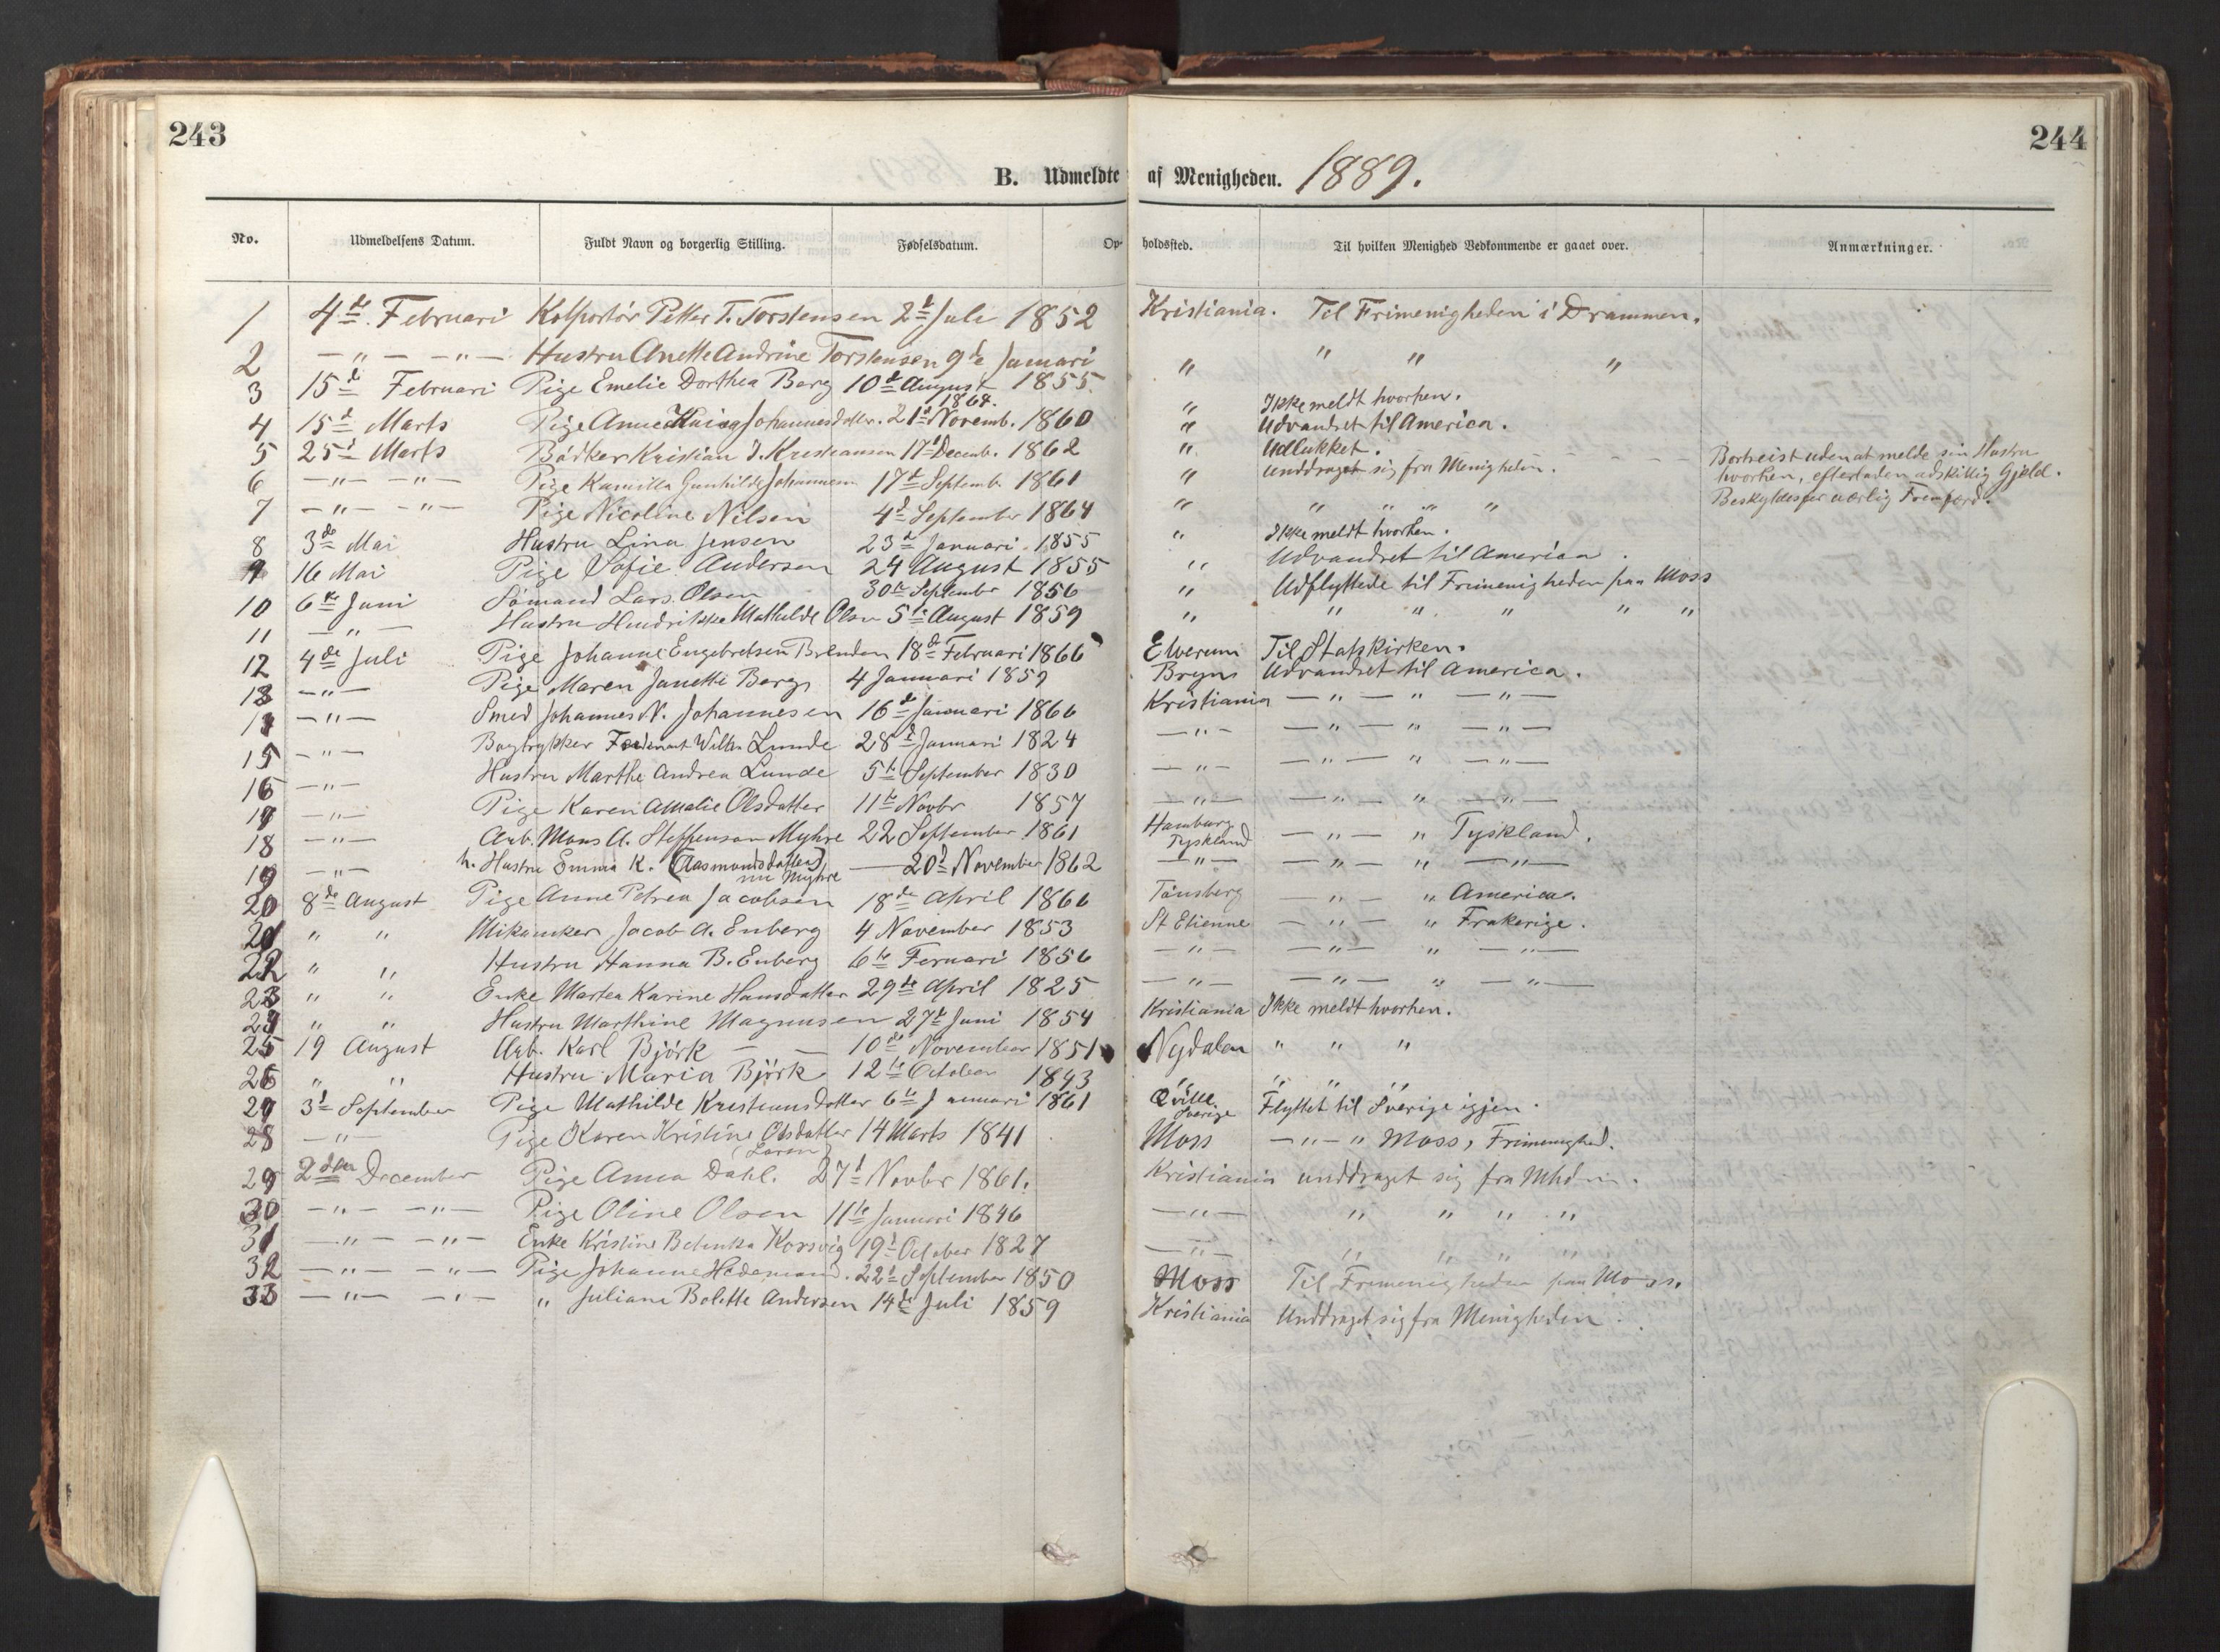 243
244
B. Udmeldte af Menigheden. 1889.
No. Udmeldelsens Datum. Fuldt Navn og borgerlig Stilling. Fødselsdatum. Opholdssted. Til hvilken Menighed Vedkommende er gaaet over. Anmærkninger.
1 4de Februari Kolportør Petter T. Torstensen 2d Juli 1852 Kristiania. Til Frimenigheden i Drammen.
2 — " — — " — Hustru Anette Andrine Torstensen 9de Januari 1855 " " " "
3 15d Februari Pige Emelie Dorthea Berg 10d August 1864. " Ikke meldt hvorhen.
4 15d Marts Pige Anne Johannesdatter. 21d Novemb. 1860 " Udvandret til America.
5 25d Marts Bødker Kristian J. Kristiansen 17d Decemb. 1862 " Udlukket. Bortreist uden at melde sin Hustru
hvorhen, efterladen adskillig Gjeld.
Beskyldes for uærlig Fremfærd.
6 — " — — " — Pige Kamilla Gunhilde Johannesen 17d Septemb. 1861 " unddraget sig fra Menigheden.
7 — " — — " — Pige Nicoline Nilsen 4d September 1864 " " " " "
8 3de Mai Hustru Lina Jensen 23d Januari 1855 " Ikke meldt hvorhen.
9 16 Mai Pige Sofie Andersen 24 August 1855 " Udvandret til America.
10 6te Juni Sømand Lars Olsen 30te September 1856 " Udflyttede til Frimenigheden paa Moss
11 — " — Hustru Hendrikke Mathilde Olsen 5te August 1859 " " " " " "
12 4de Juli Pige Johanne Engebretsen Brenden 18de Februari 1866 Elverum Til Statskirken.
13 — " — Pige Maren Janette Berg 4 Januari 1859 Bryn Udvandret til America.
14 — " — Smed Johannes N. Johannesen 16de Januari 1866 Kristiania — " — " — " —
15 — " — Bogtrykker Wilh. Lunde 28d Januari 1824 — " — — " — " — " —
16 — " — Hustru Marthe Andrea Lunde 5te September 1830 — " — — " — " — " —
17 — " — Pige Karen Amalie Olsdatter 11te Novbr 1857 — " — — " — " — " —
18 — " — Arb. Mons A. Steffensen Myhre 22 September 1861 Hamburg Tyskland — " — " Tyskland.
19 — " — h. Hustru Emma K. (Aasmundsdatter) nu Myhre — 20d November 1862 — " — — " — " — " —
20 8de August Pige Anne Petrea Jacobsen 18de April 1866 Tønsberg — " — " America.
21 " " Jacob A. Enberg 4 November 1853 St Etienne — " — " Frakerige.
22 " " Hustru Hanna B. Enberg 6te Feruari 1856 — " — — " — " — " —
23 " " Enke Martea Karine Hansdatter 29de April 1825 — " — — " — " — " —
24 " " Hustru Marthine Magnusen 27d Juni 1854 Kristiania Ikke meldt hvorhen.
25 19 August Arb. Karl Björk — — 10de November 1851 Nydalen " " "
26 " " Hustru Maria Björk 12te October 1843 " " " "
27 3d September Pige Mathilde Kristiansdatter 6te Januari 1861 Qville. Sverige Flyttet til Sverige igjen.
28 — " — Pige Karen Kristine Olsdatter (Loren) 14 Marts 1841 Moss — " — " Moss, Frimenighed.
29 2den December Pige Anna Dahl. 27d Novbr 1861. Kristiania unddraget sig fra Mhdn.
30 — " — — " — Pige Oline Olsen 11te Januari 1846 — " — " " " "
31 — " — — " — Enke Kristine Korsvig 19d October 1827 — " — " " " "
32 — " — — " — Pige Johanne Hedemand. 22d September 1850 Moss Til Frimenigheden paa Moss.
33 — " — — " — " Juliane Bolette Andersen 14de Juli 1859 Kristiania Unddraget sig fra Menigheden.